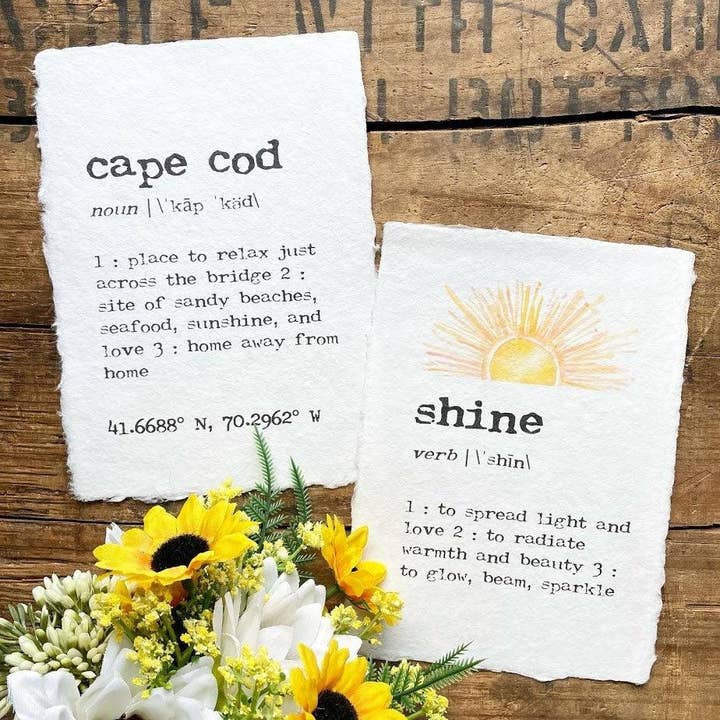 WITH CAR
BOTTO
cape cod
noun | \ˈkāp ˈkäd\
1 : place to relax just
across the bridge 2 :
site of sandy beaches,
seafood, sunshine, and
love 3 : home away from
home
41.6688° N, 70.2962° W
shine
verb | \ˈshīn\
1 : to spread light and
love 2 : to radiate
warmth and beauty 3 :
to glow, beam, sparkle